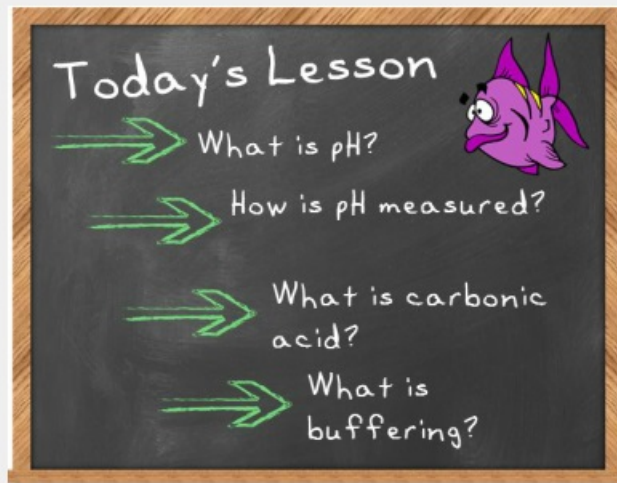 Today's Lesson
What is pH?
How is pH measured?
What is carbonic
acid?
What is
buffering?